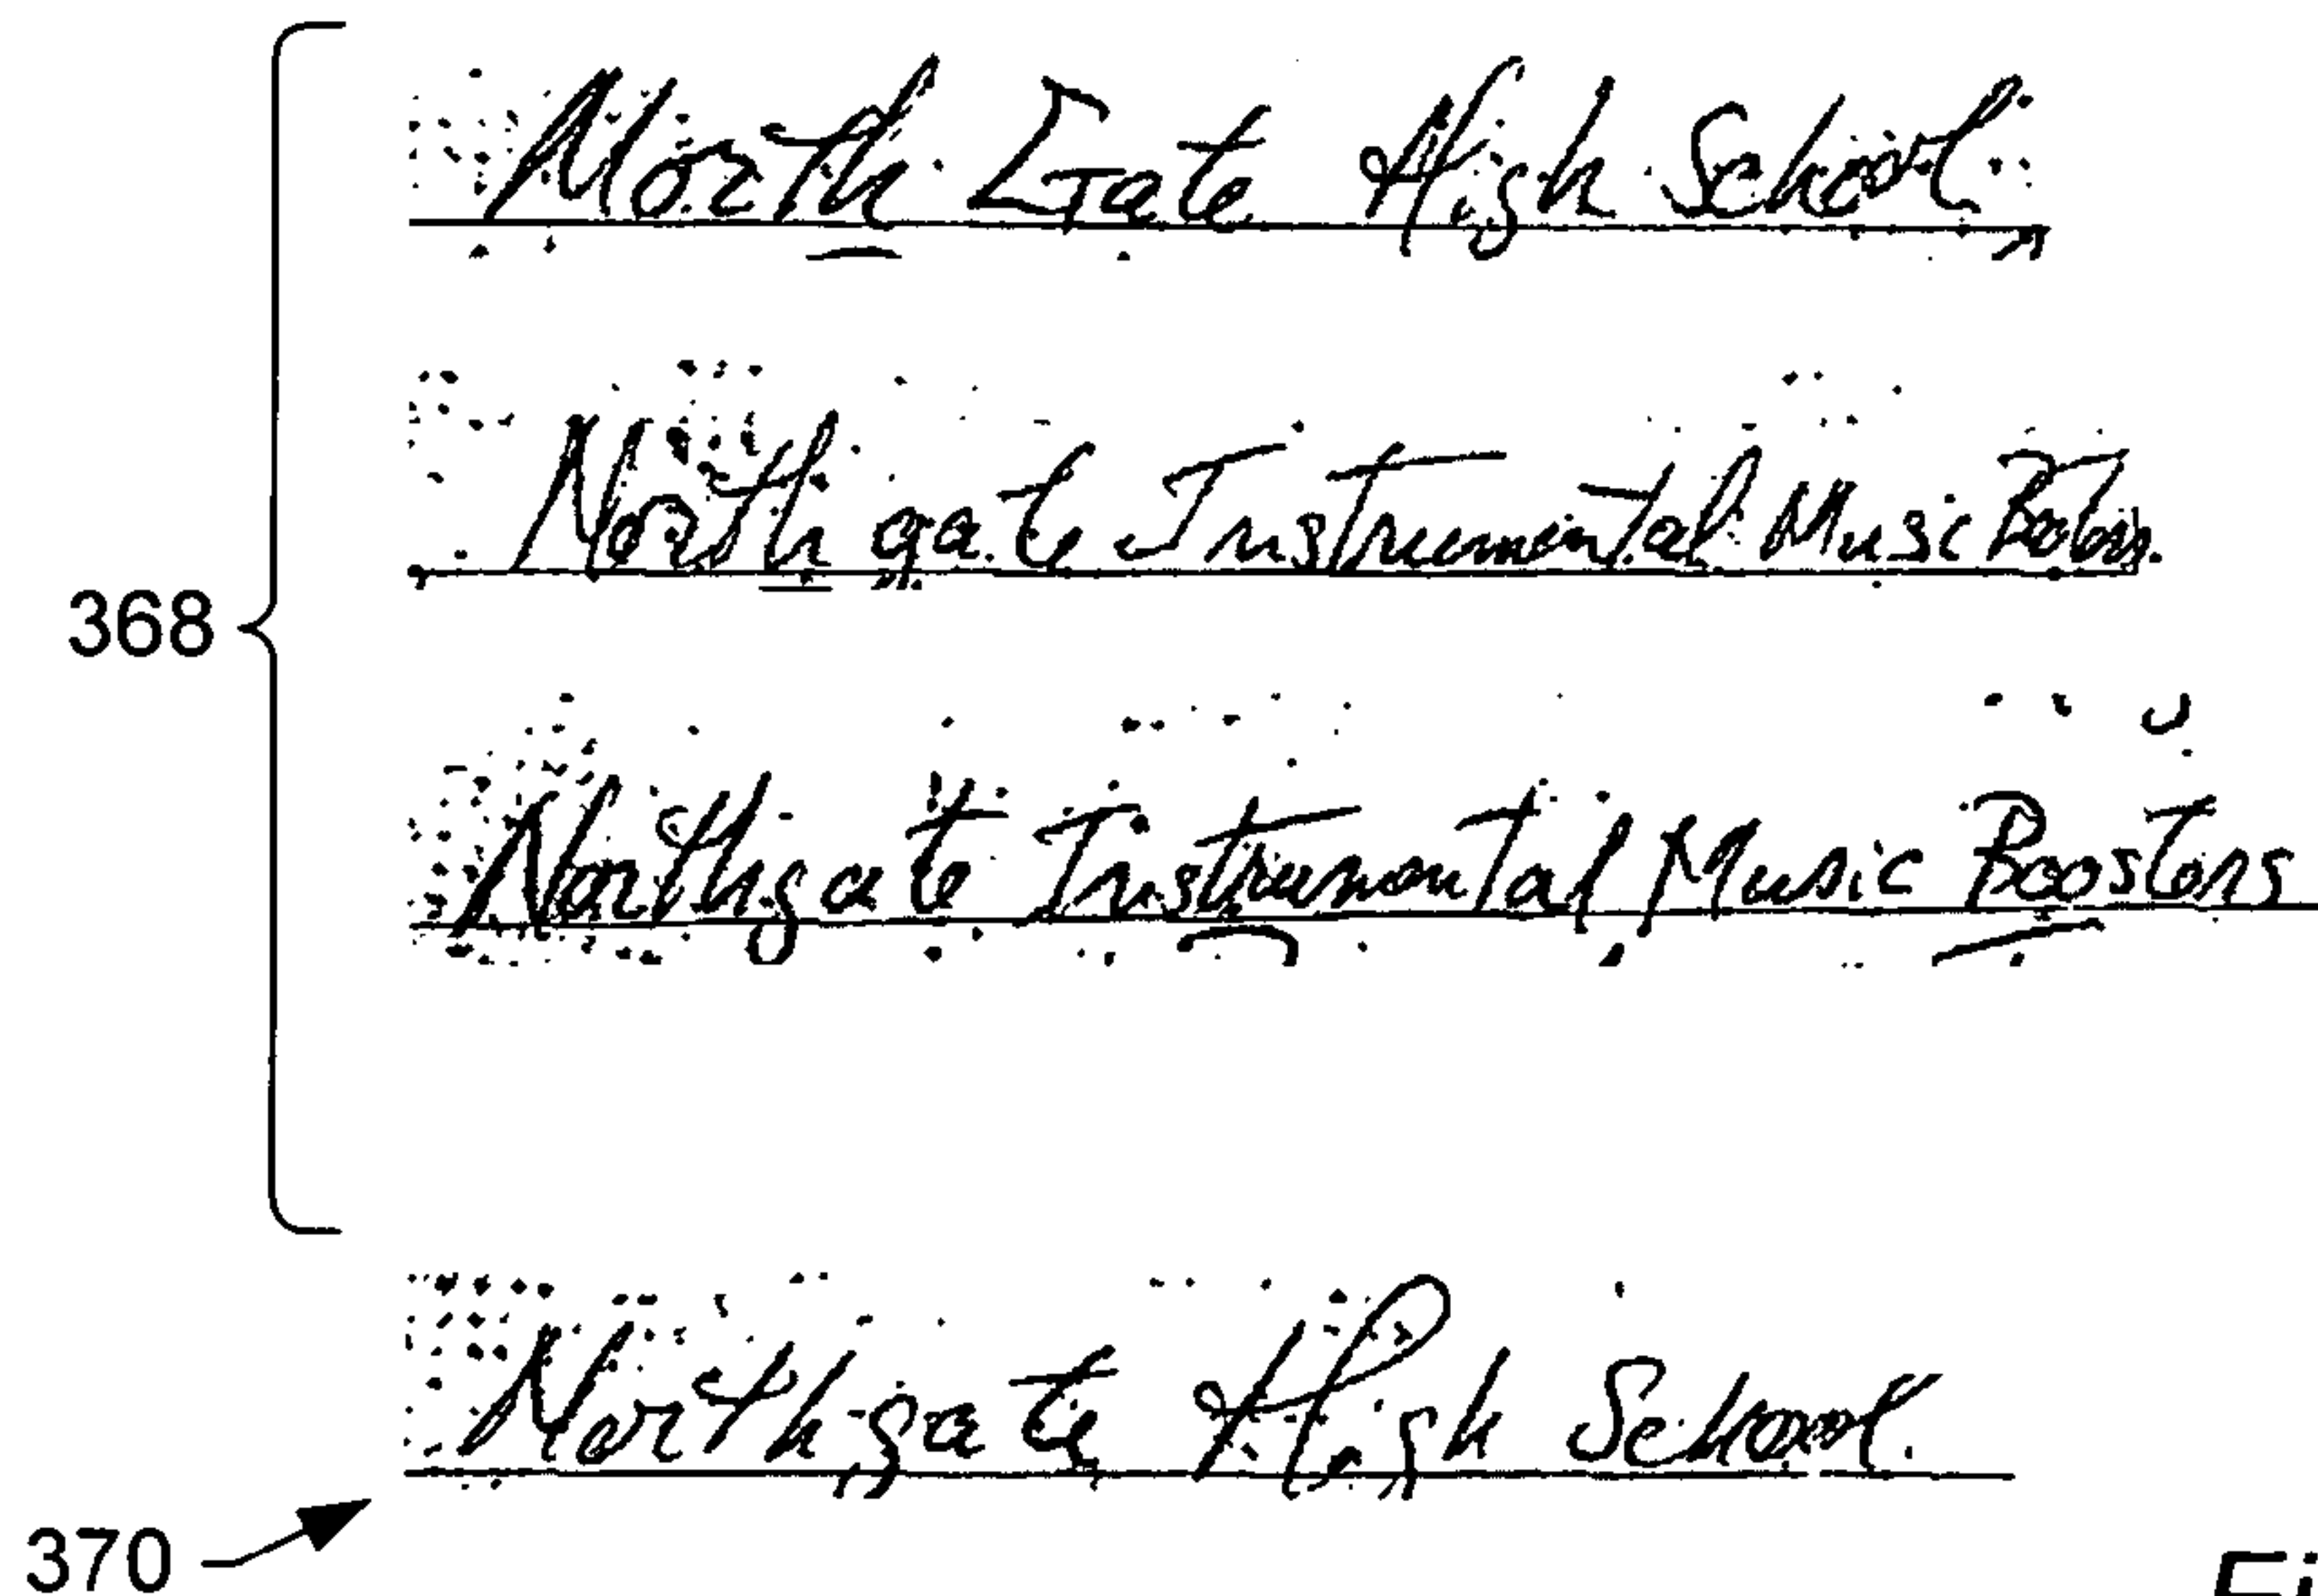 North Gate High School
North gate Instrumental Music
368
Northgate Instrumental Music Boosters
Northgate High School
370